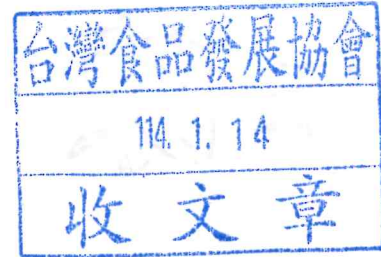 台灣食品發展協會
114. 1. 14
收文章